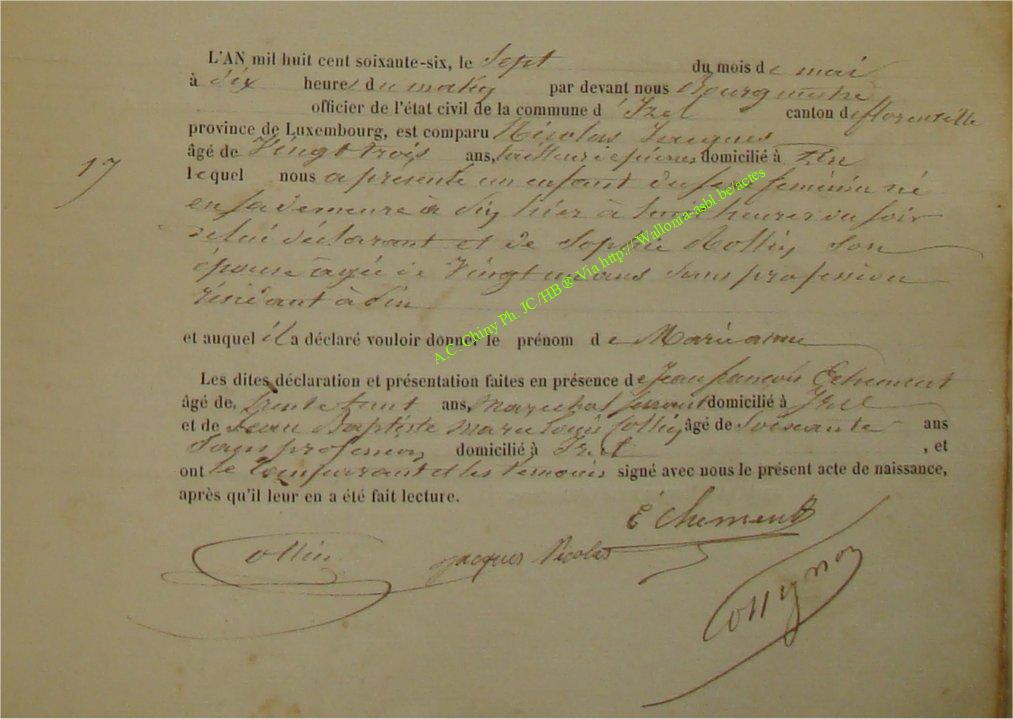 L'AN mil huit cent soixante-six, le Sept du mois de mai
à dix heures du matin par devant nous Bourgmestre
officier de l'état civil de la commune d'Izel canton de florenville
province de Luxembourg, est comparu Nicolas Jacques
17
âgé de Vingt trois ans, tailleur de pierres domicilié à Pin
lequel nous a présenté un enfant du sexe féminin né
en sa demeure à Pin hier à heures du soir
de lui déclarant et de Sophie Rollin, son
épouse âgée de Vingt un ans Sans profession
résidant à Pin
et auquel il a déclaré vouloir donner le prénom de Marianne
Les dites déclaration et présentation faites en présence de Jean françois Echement
âgé de trente ans, Marechal ferrant domicilié à Izel
et de Jean Baptiste Marie Louis Collin, âgé de Soixante ans
Sans profession domicilié à Izel , et
ont le Comparant et les témoins signé avec nous le présent acte de naissance,
après qu'il leur en a été fait lecture.
Echement
Collin Jacques Nicolas
Collignon
A.C. Chiny Ph. JC/HB ® Via http://Wallonia-asbl.be/actes